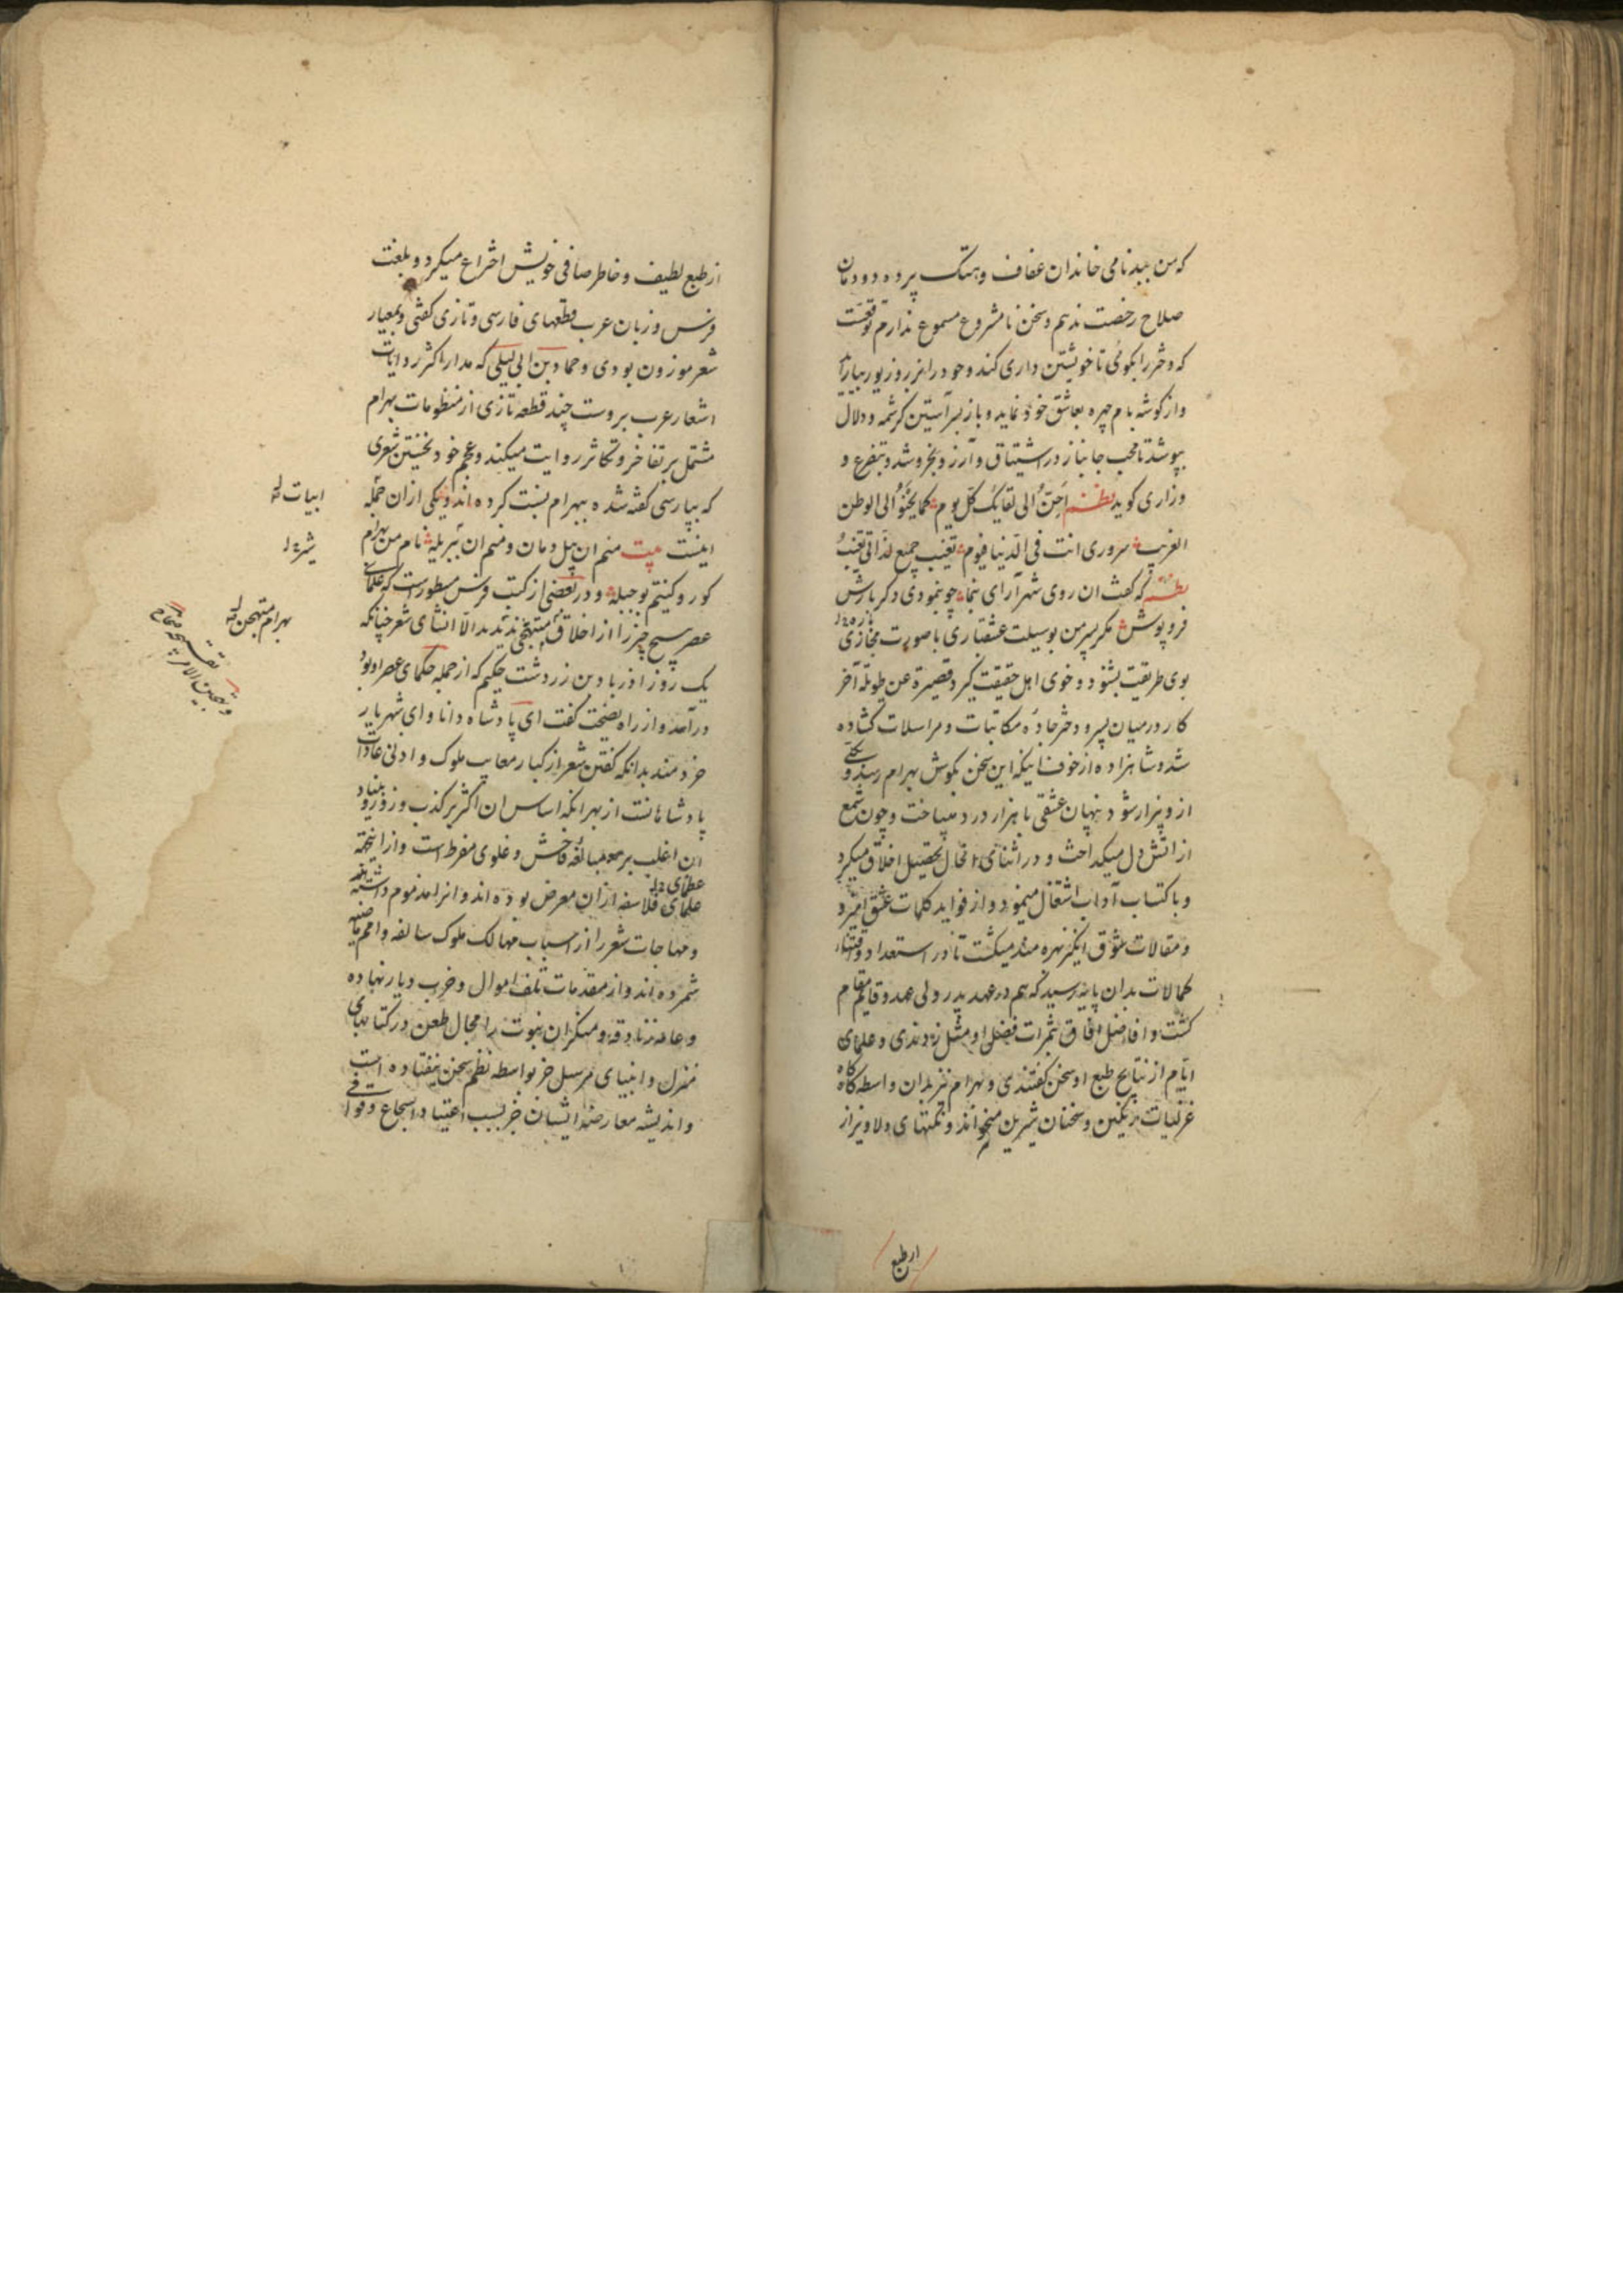 که من ببدنامی خاندان عفاف وهتک پرده دودمان
صلاح رخصت ندهم وسخن نامشروع مسموع ندارم توقعست
که دختر را بکوئی تا خویشتن داری کند وخود را بزر وزیور بیاراید
واز کوشه بام چهره بعاشق خود نماید وباز بسر آستین کرشمه ودلال
بپوشد تا محب جانباز در اشتیاق وآرزو بخروشد وبتضرع و
وزاری کوید نظم احن الی لقایک کل یوم کما یحنو الی الوطن
الغریب سروری انت فی الدنیا فیوم تغیب جمیع لذاتی تغیب
که کفت ان روی شهرآرای بنما چو بنمودی دکر بارش
فروپوش مکر پسر من بوسیلت عشقبازی با صورت مجازی
بوی طریقت بشنود وخوی اهل حقیقت کیرد قصیرة عن طویلة آخر
کار در میان پسر ودختر جاده مکاتبات ومراسلات کشاده
شد وشاهزاده از خوف اینکه این سخن بکوش بهرام رسد و
ازو بیزار شود پنهان عشقی با هزار درد میباخت وچون شمع
از اتش دل میکداخت ودر اثنای انحال تحصیل اخلاق میکرد
وباکتساب آداب اشتغال مینمود واز فواید کلمات عشق آمیز
ومقالات شوق انکیز بهره مند میکشت تا در استعداد
کمالات بدان پایه رسید که هم در عهد پدر ولی عهد وقایم مقام
کشت وافاضل افاق بثمرات فضل او مثل زدندی وعلمای
ایام از نتایج طبع او سخن کفتندی وبهرام نیز بدان واسطه کاه کاه
غزلیات رنکین وسخنان شیرین میخواند ونکتهای دلاویز از
از طبع
از طبع لطیف وخاطر صافی خویش اختراع میکرد وبلغت
فرس وزبان عرب قطعهای فارسی وتازی کفتی وبمعیار
شعر موزون بودی وحماد بن ابی لیلی که مدار اکثر روایات
اشعار عرب بروست چند قطعه تازی از منظومات بهرام
مشتمل بر تفاخر وتکاثر روایت میکند وعجم خود نخستین شعری
که بپارسی کفته شده ببهرام نسبت کرده اند ویکی از ان جمله
اینست بیت منم ان پیل دمان ومنم ان شیر یله نام من بهرام
کور وکنیتم بوجبله ودر بعضی از کتب فرس مسطورست که علمای
عصر هیچ چیز را از اخلاق مستهجن ندیدند الا انشای شعر چنانکه
یک روز اذرباد بن زردشت حکیم که از جمله حکمای عصر او بود
درآمد واز راه نصیحت کفت ای پادشاه دانا وای شهریار
خردمند بدانکه کفتن شعر از کبار معایب ملوک وادنی عادات
پادشاهانست از بهر انکه اساس ان اکثر بر کذب وزور وبنیاد
ان اغلب بر مبالغه فاحش وغلوی مفرط است وازاینجهة
عظمای
علمای فلاسفه ازان معرض بوده اند وانرا مذموم داشته اند
ومهاجات شعر را از اسباب مهالک ملوک سالفه وامم ماضیه
شمرده اند واز مقدمات تلف اموال وخرب دیار نهاده
وعامه زنادقه ومنکران نبوت را مجال طعن در کتابهای
منزل وانبیای مرسل جز بواسطه نظم سخن نیفتاده است
واندیشه معارضه ایشان جز بسبب اعتیاد اسجاع وقوافی
ابیات
بهرام